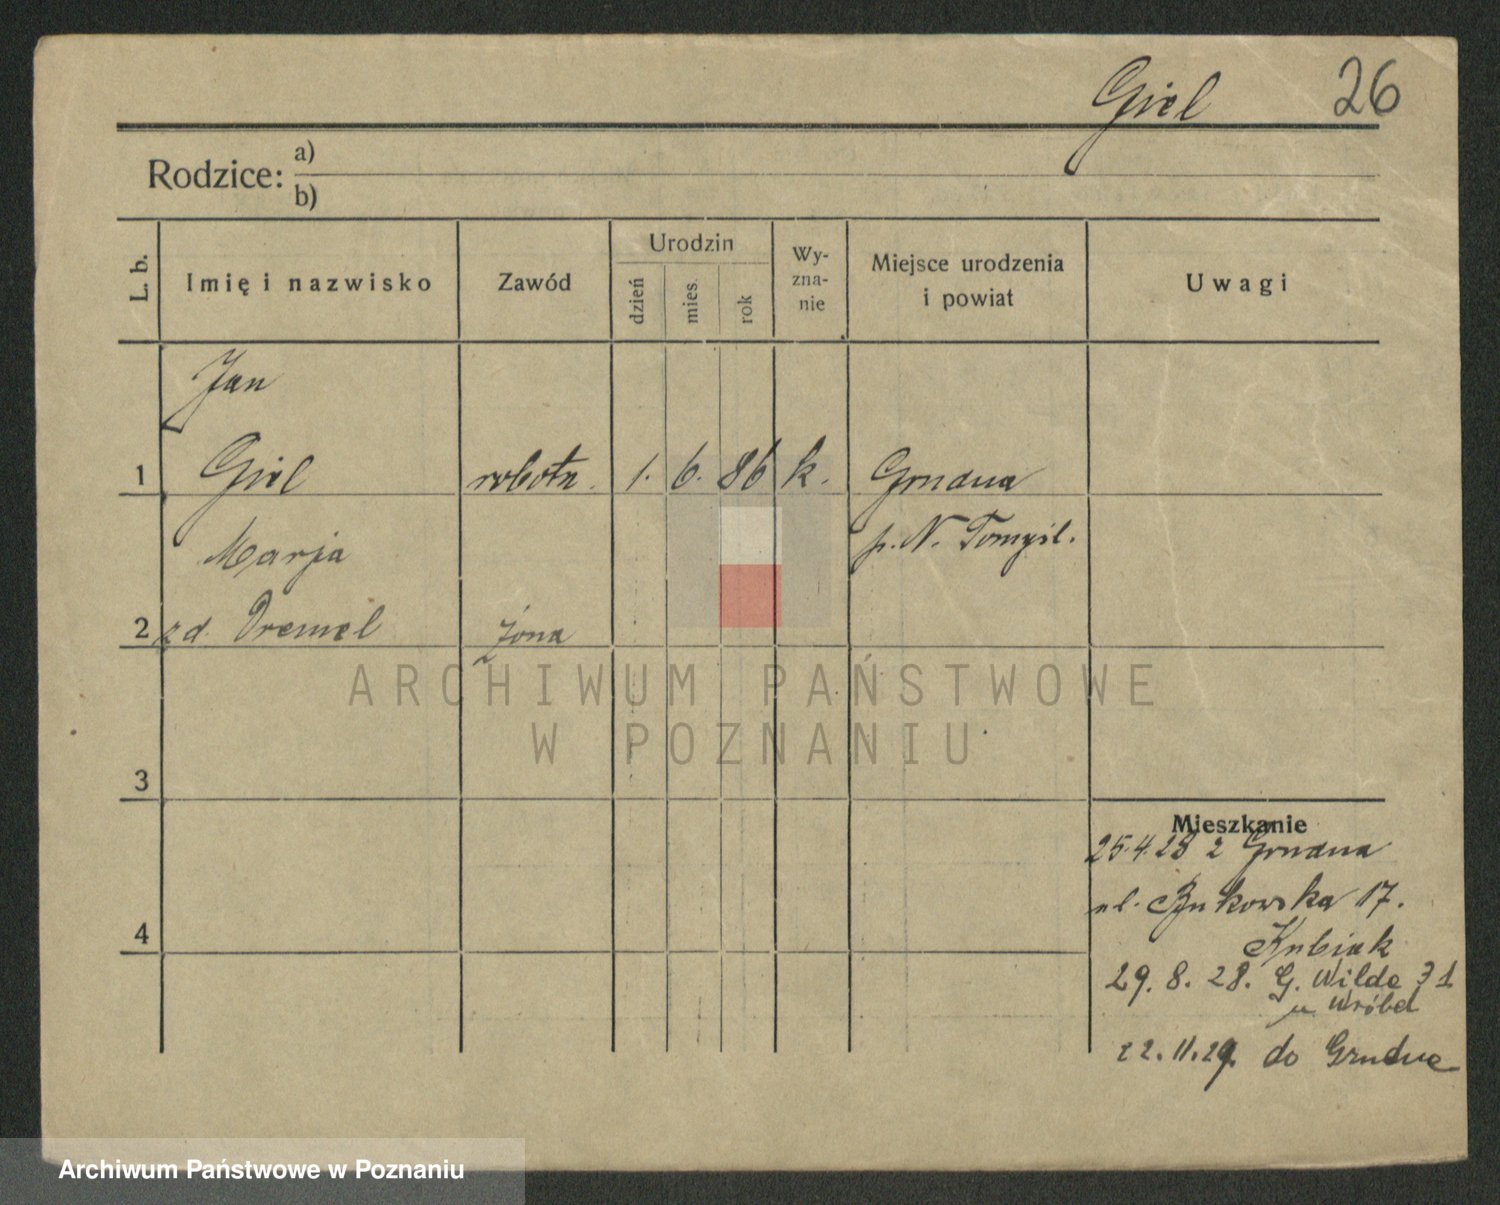 Giel 26
Rodzice: a)
b)
L. b.
Imię i nazwisko
Zawód
Urodzin
dzień
mies.
rok
Wy-
zna-
nie
Miejsce urodzenia
i powiat
Uwagi
Jan
1 Giel robotn. 1. 6. 86 k. Grudna
p. N. Tomyśl.
Marja
2 zd. Dremel żona
3
4
Mieszkanie
25.4.28 z Grudna
ul. Bukowska 17.
Kubiak
29. 8. 28. G. Wilda 31
u Wróbel
22.11.29. do Grudna
ARCHIWUM PAŃSTWOWE
W POZNANIU
Archiwum Państwowe w Poznaniu